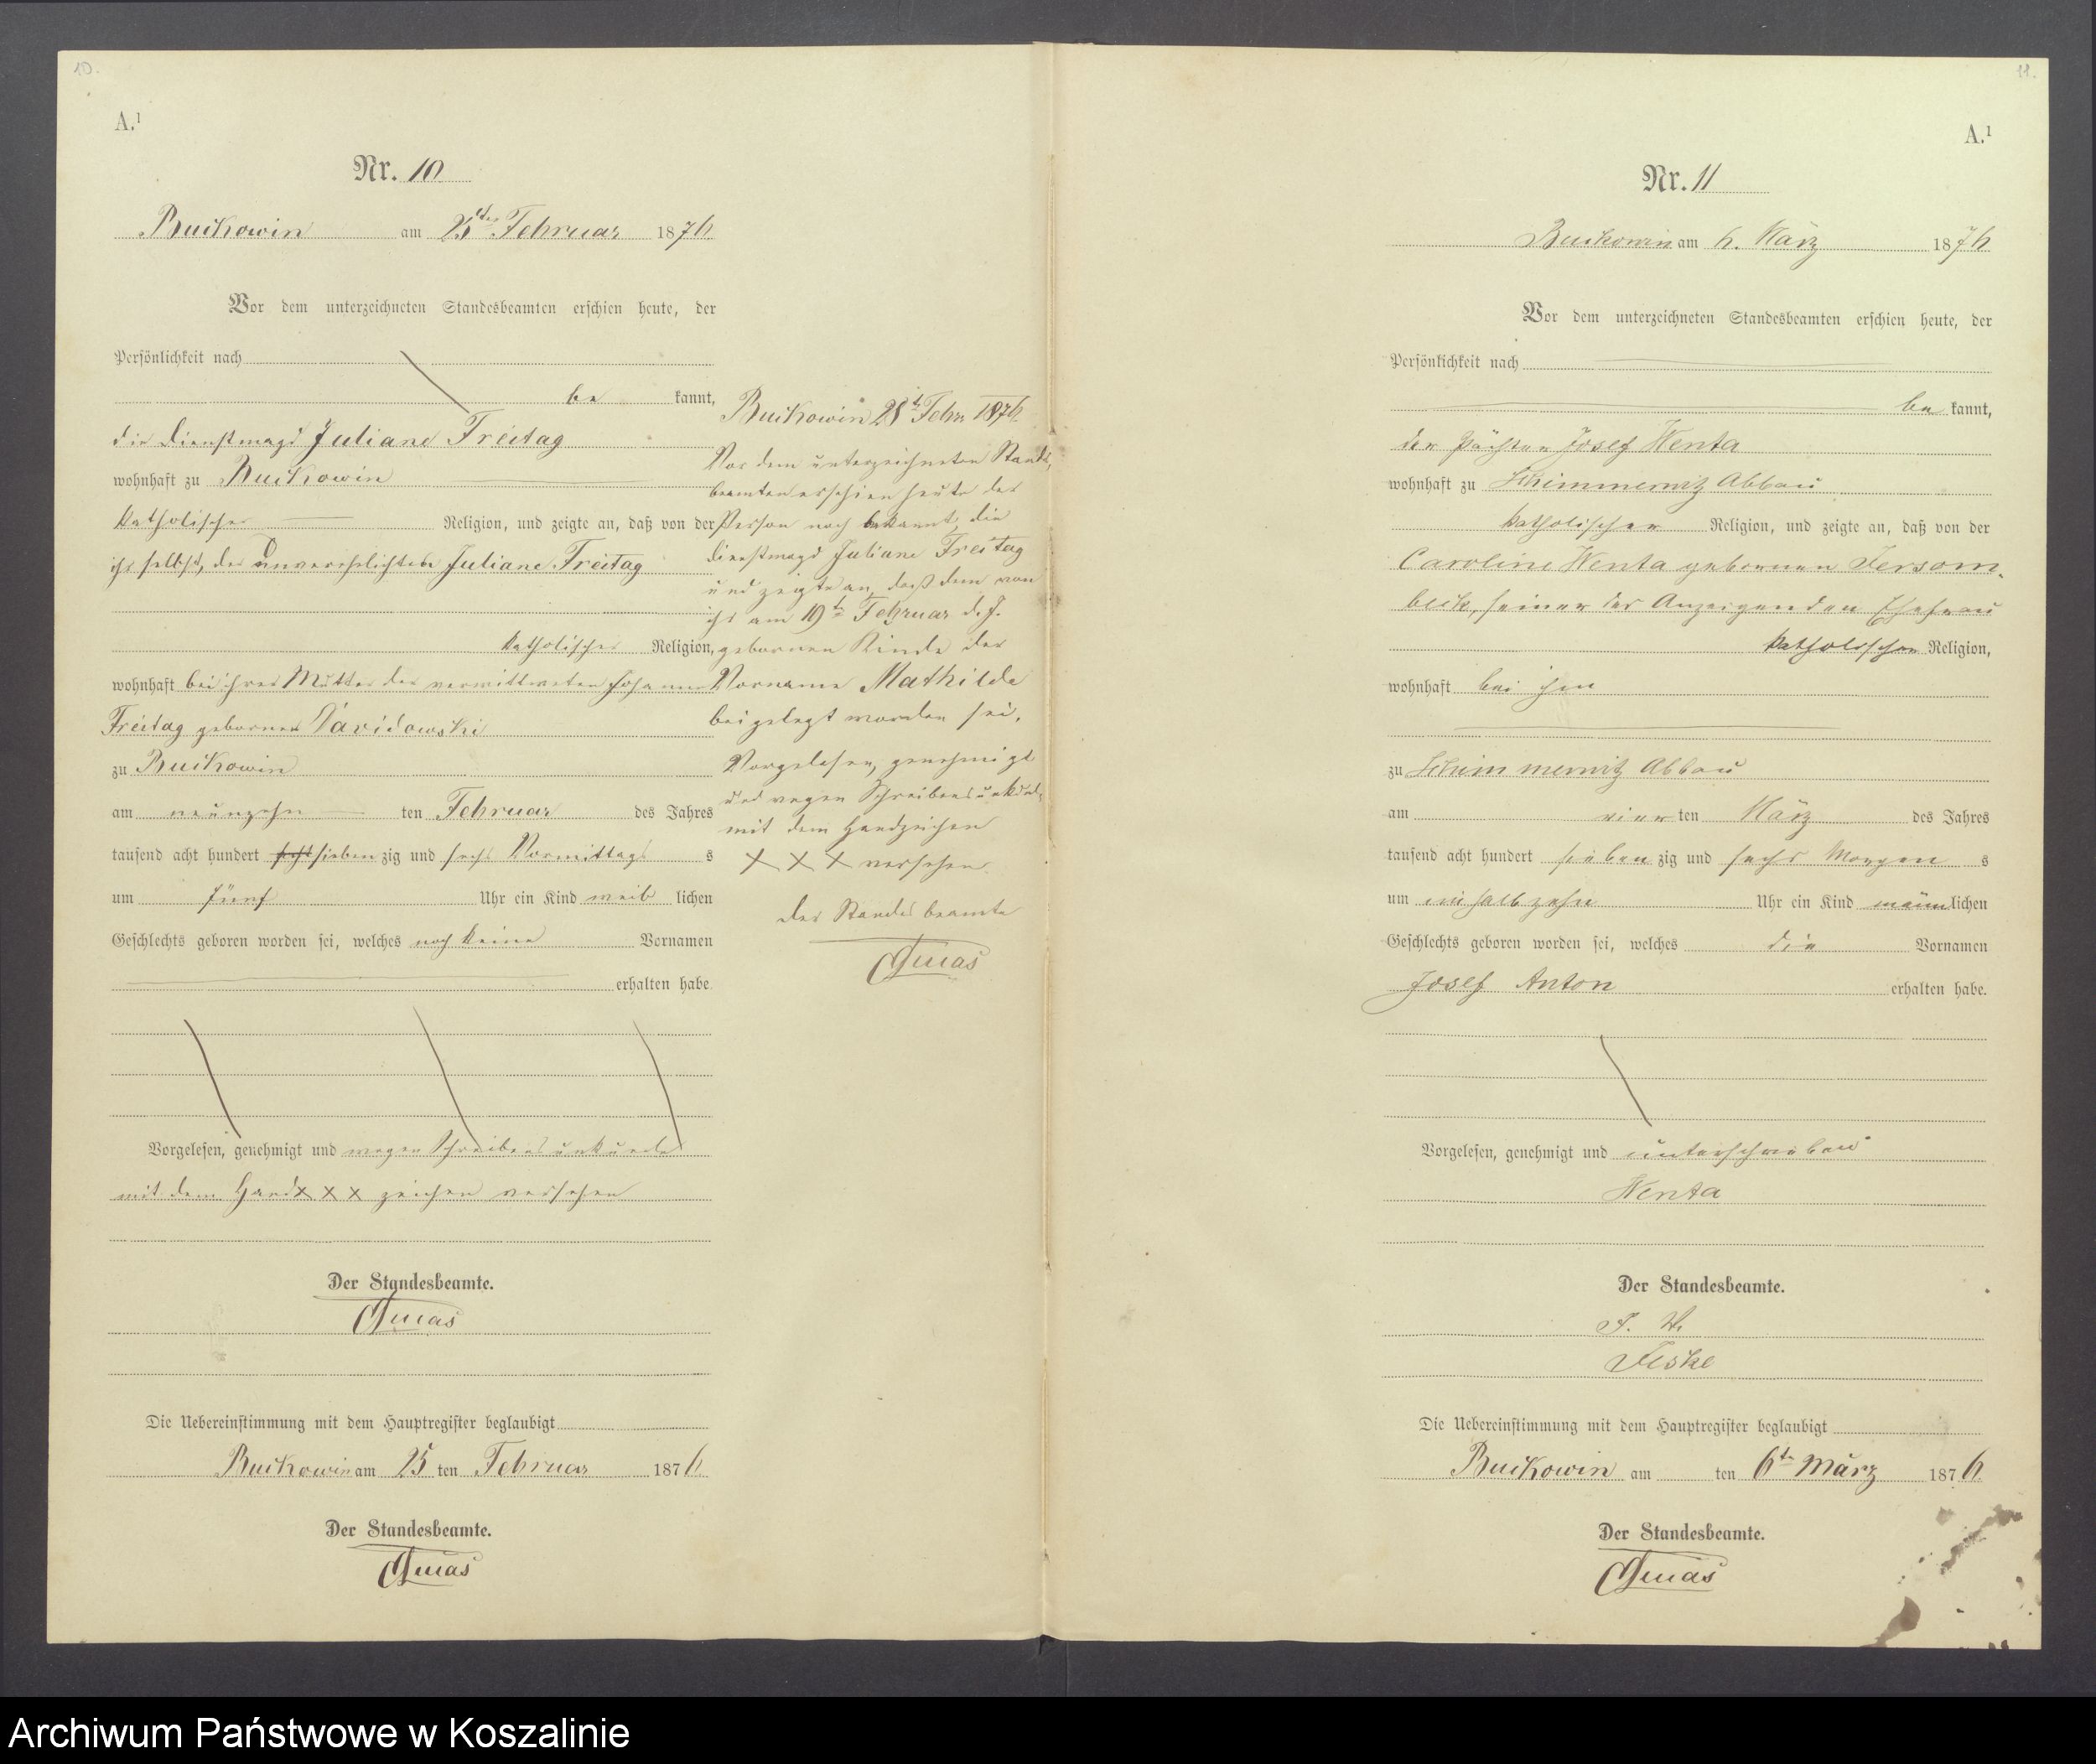 10.
A.¹
Nr. 10
Buckowin am 25ten Februar 1876
Vor dem unterzeichneten Standesbeamten erschien heute, der
Persönlichkeit nach
be kannt,
die Dienstmagd Juliane Freitag
wohnhaft zu Buckowin
katholischer Religion, und zeigte an, daß von der
ihr selbst, der unverehelichten Juliane Freitag
katholischer Religion,
wohnhaft bei ihrer Mutter der verwittweten Johanna
Freitag geborner Davidowski
zu Buckowin
am neunzehn ten Februar des Jahres
tausend acht hundert sieben zig und sechs Vormittags s
um fünf Uhr ein Kind weib lichen
Geschlechts geboren worden sei, welches noch keine Vornamen
erhalten habe
Vorgelesen, genehmigt und wegen Schreibensunkunde
mit dem Hand x x x zeichen versehen
Der Standesbeamte.
Die Uebereinstimmung mit dem Hauptregister beglaubigt
Buckowin am 25 ten Februar 1876
Der Standesbeamte.
Buckowin 28t Febr 1876.
Vor dem unterzeichneten Stands,
beamten erschien heute der
Person nach bekannt, die
Dienstmagd Juliane Freitag
und zeigte an, daß dem von
ihr am 19t Februar d. J.
gebornen Kinde der
Vorname Mathilde
beigelegt worden sei.
Vorgelesen, genehmigt
und wegen Schreibensunkunde
mit dem Handzeichen
x x x versehen.
Der Standesbeamte
11.
A.¹
Nr. 11
Buckowin am 6. März 1876
Vor dem unterzeichneten Standesbeamten erschien heute, der
Persönlichkeit nach
be kannt,
der Pächter Josef Wenta
wohnhaft zu Schimmerwitz Abbau
katholischer Religion, und zeigte an, daß von der
Caroline Wenta gebornen
seiner des Anzeigenden Ehefrau
katholischer Religion,
wohnhaft bei ihm
zu Schimmerwitz Abbau
am vier ten März des Jahres
tausend acht hundert sieben zig und sechs Morgen s
um ein halb zehn Uhr ein Kind männ lichen
Geschlechts geboren worden sei, welches die Vornamen
Josef Anton erhalten habe.
Vorgelesen, genehmigt und unterschrieben
Wenta
Der Standesbeamte.
Jeske
Die Uebereinstimmung mit dem Hauptregister beglaubigt
Buckowin am ten 6te März 1876
Der Standesbeamte.
Archiwum Państwowe w Koszalinie